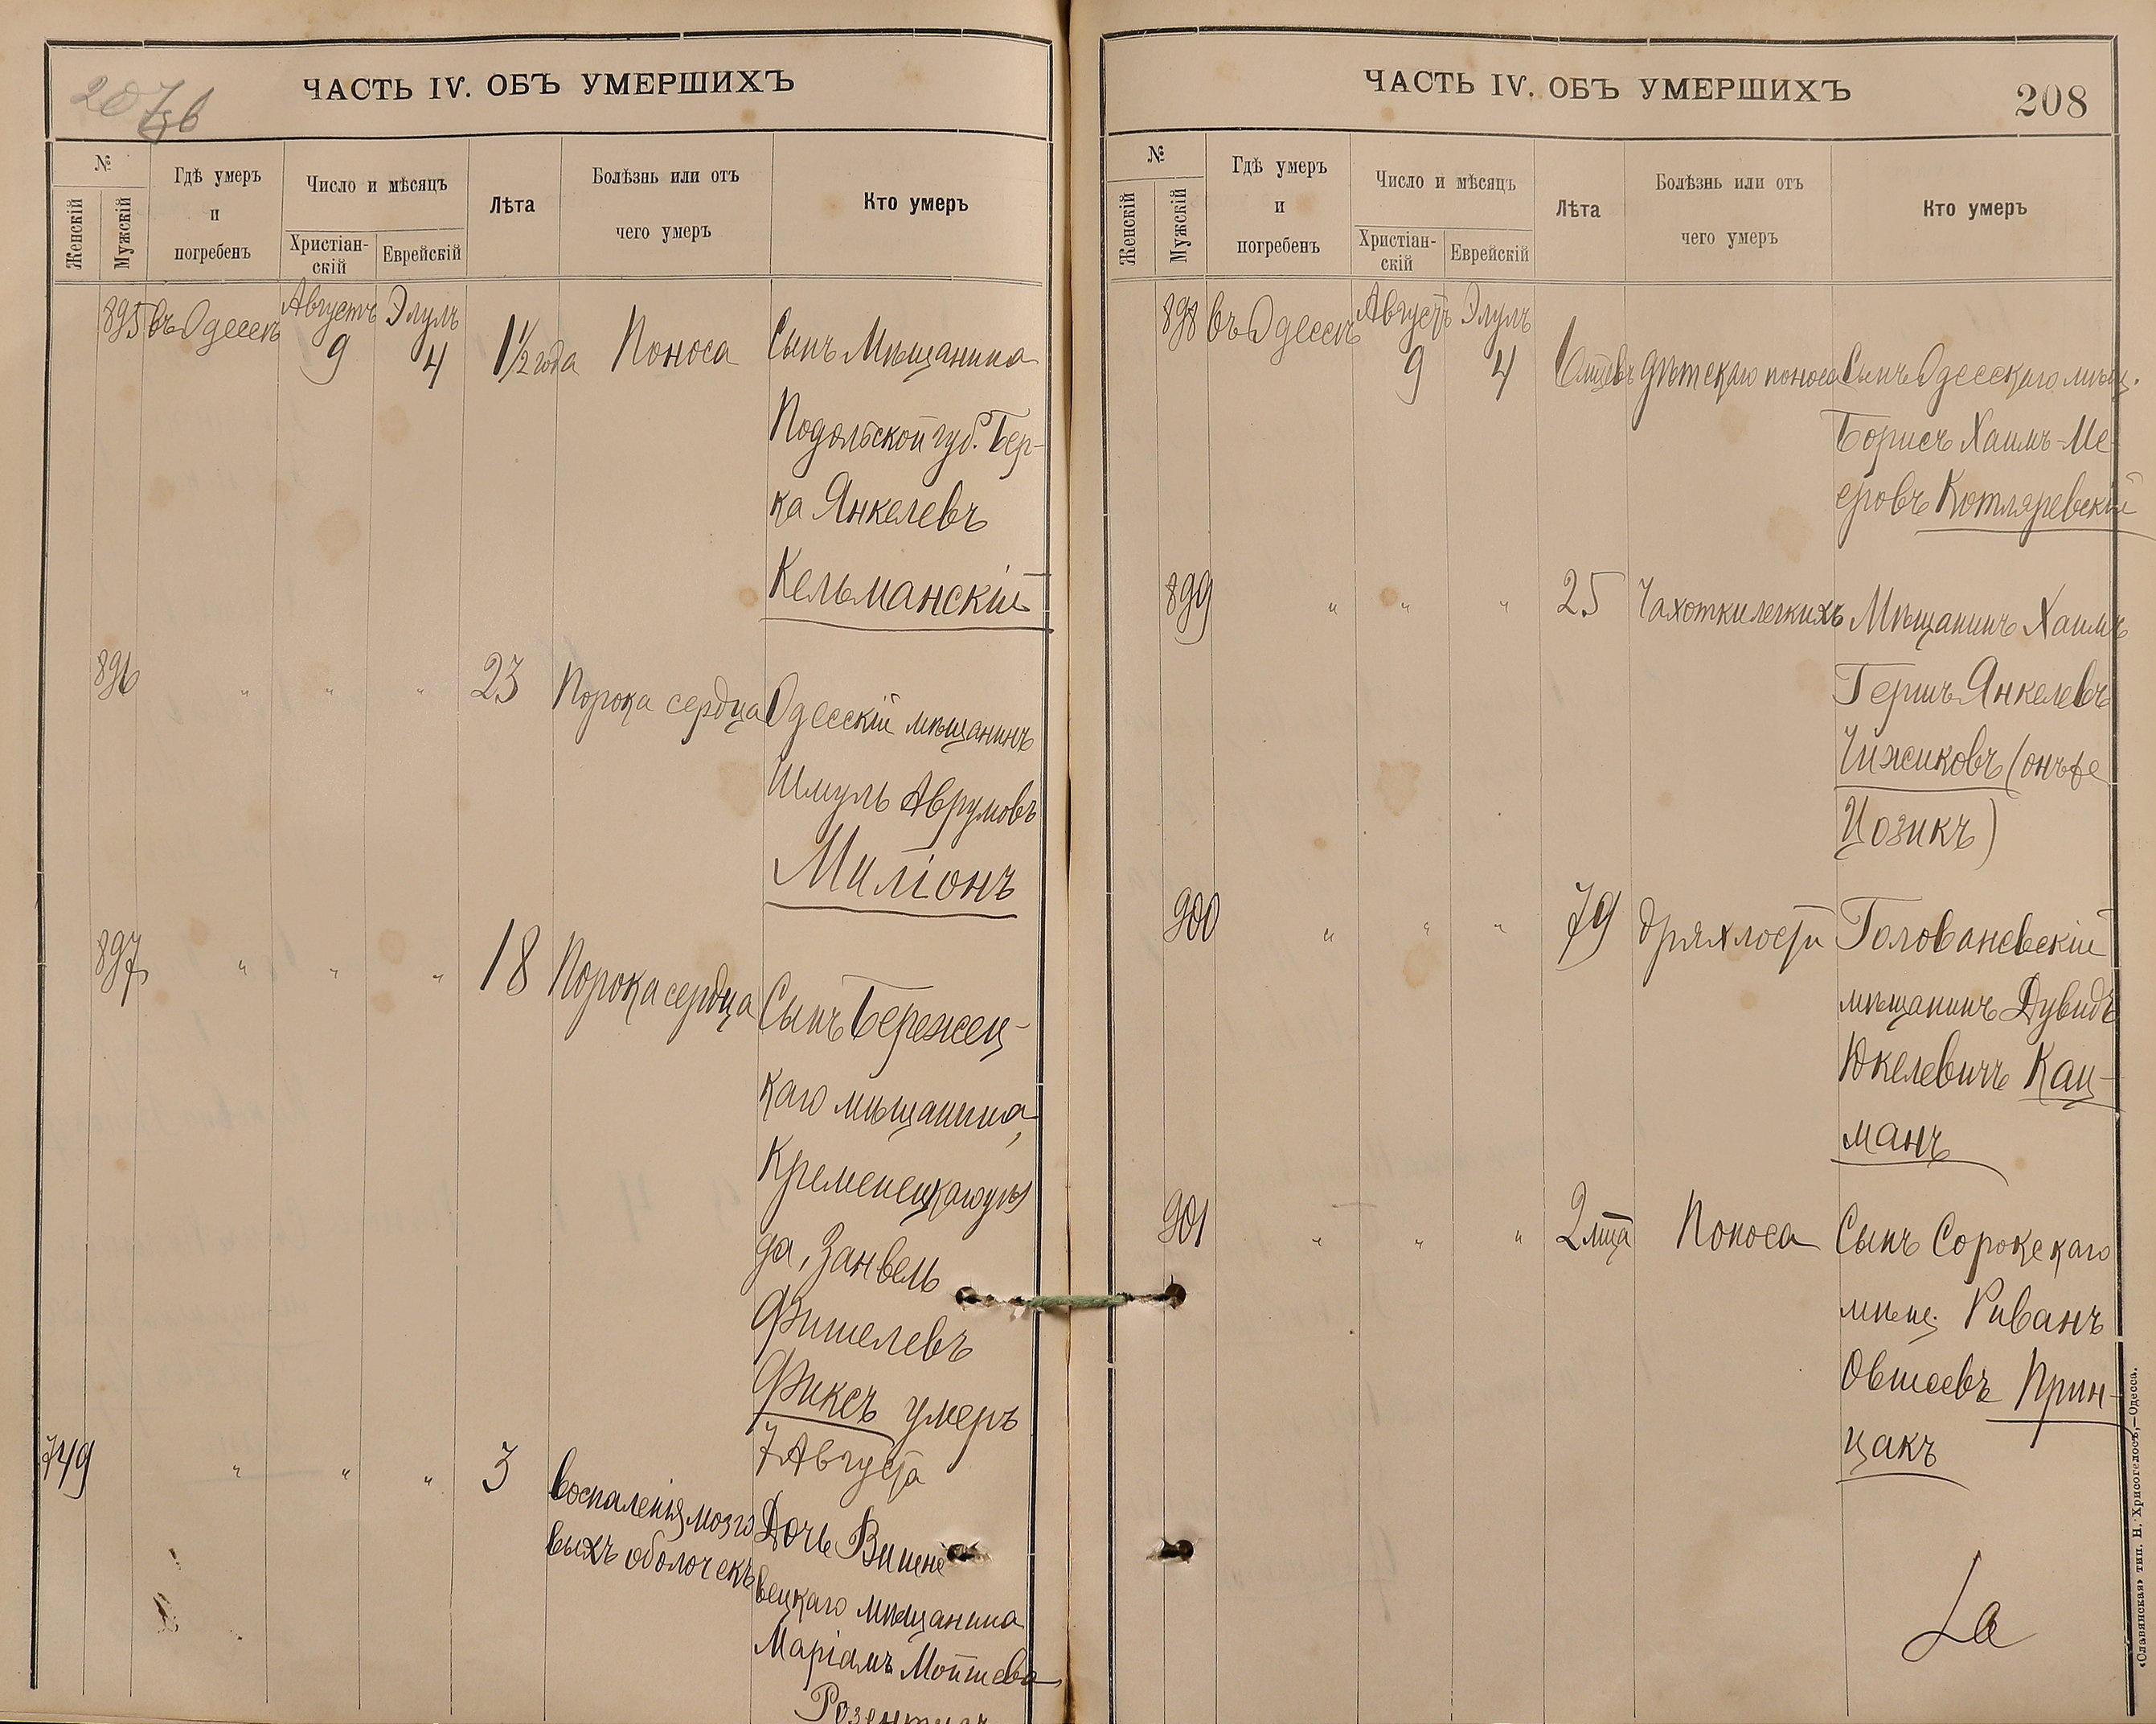 207 зв
ЧАСТЬ IV. ОБЪ УМЕРШИХЪ
№
Женскій
Мужскій
Гдѣ умеръ
и
погребенъ
Число и мѣсяцъ
Христіан-
скій
Еврейскій
Лѣта
Болѣзнь или отъ
чего умеръ
Кто умеръ
895 въ Одессѣ Августъ 9 Элулъ 4 1½ года Поноса Сынъ Мѣщанина
Подольской губ. Бер-
ка Янкелевъ
Кельманскій
896 " " " 23 Порока сердца Одесскій мѣщанинъ
Шмуль Аврумовъ
Миліонъ
897 " " " 18 Порока сердца Сынъ Бережец-
каго мѣщанина,
Кременецкаго уѣз
да, Занвель
Фишелевъ
Фиксъ умеръ
7 Августа
749 " " " 3 Воспаленія мозго
выхъ оболочекъ
Дочь Вишне
вецкаго мѣщанина
Маріамъ Мойшева
ЧАСТЬ IV. ОБЪ УМЕРШИХЪ
208
№
Женскій
Мужскій
Гдѣ умеръ
и
погребенъ
Число и мѣсяцъ
Христіан-
скій
Еврейскій
Лѣта
Болѣзнь или отъ
чего умеръ
Кто умеръ
898 въ Одессѣ Августъ 9 Элулъ 4 дѣтскаго поноса Сынъ Одесскаго мѣщ.
Борисъ Хаимъ-Ме-
еровъ Котляревскій
899 " " " 25 Чахотки легкихъ Мѣщанинъ Хаимъ
Гершъ Янкелевъ
Чижиковъ (онъ же
Цозикъ)
900 " " " 79 дряхлости Голованевскій
мѣщанинъ Дувидъ
Юкелевичъ Кац-
манъ
901 " " " 2 мца Поноса Сынъ Сорокскаго
мѣщ. Риванъ
Овшеевъ Прин-
цакъ
«Славянская» тип. Н. Хрисогелосъ,—Одесса.